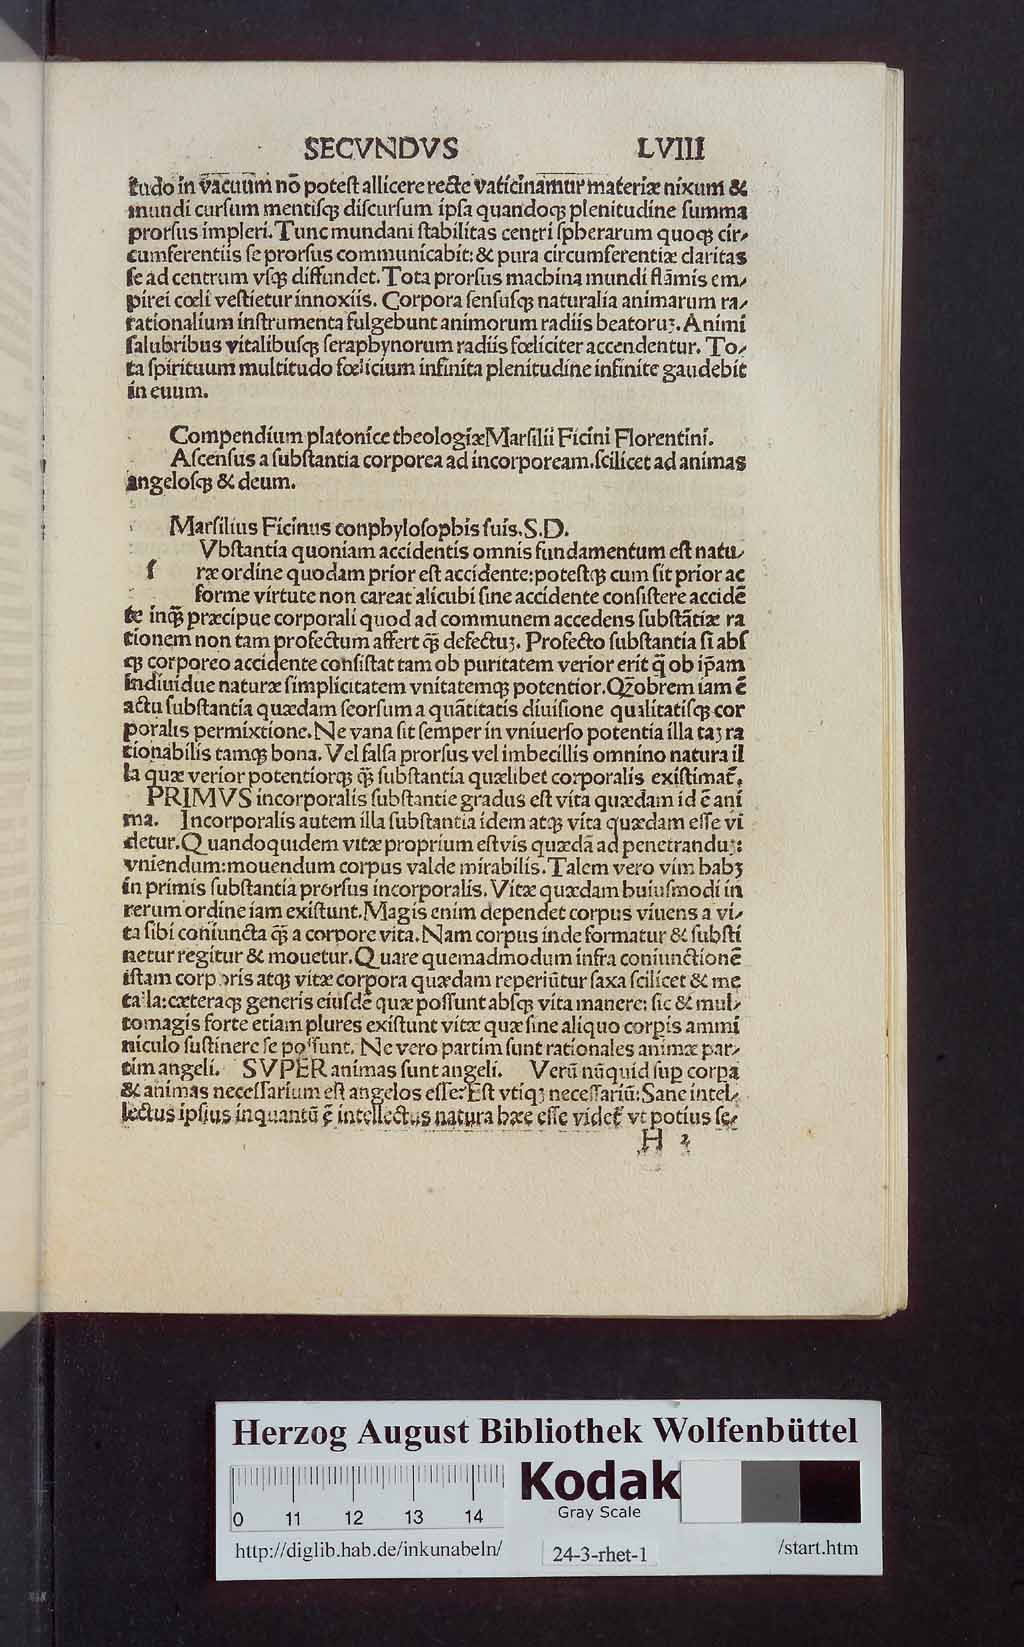 SECVNDVS LVIII
tudo in vacuum nō potest allicere recte vaticinamur materiæ nixum &
mundi cursum mentisqꝫ discursum ipsa quandoqꝫ plenitudine summa
prorsus impleri. Tunc mundani stabilitas centri spherarum quoqꝫ cir-
cumferentiis se prorsus communicabit: & pura circumferentiæ claritas
se ad centrum vsqꝫ diffundet. Tota prorsus machina mundi flāmis em-
pirei cœli vestietur innoxiis. Corpora sensusqꝫ naturalia animarum ra-
rationalium instrumenta fulgebunt animorum radiis beatoruꝫ. Animi
salubribus vitalibusqꝫ seraphynorum radiis fœliciter accendentur. To-
ta spirituum multitudo fœlicium infinita plenitudine infinite gaudebit
in euum.
Compendium platonice theologiæ Marsilii Ficini Florentini.
Ascensus a substantia corporea ad incorpoream. scilicet ad animas
angelosqꝫ & deum.
Marsilius Ficinus conphylosophis suis. S. D.
Vbstantia quoniam accidentis omnis fundamentum est natu-
s ræ ordine quodam prior est accidente: potestqꝫ cum sit prior ac
forme virtute non careat alicubi sine accidente consistere accidē
te inqꝫ̄ præcipue corporali quod ad communem accedens substātiæ ra
tionem non tam profectum affert qꝫ̄ defectuꝫ. Profecto substantia si abs
qꝫ corporeo accidente consistat tam ob puritatem verior erit q̄ ob ip̄am
indiuidue naturæ simplicitatem vnitatemqꝫ potentior. Qꝫ̄obrem iam ē
actu substantia quædam seorsum a quātitatis diuisione qualitatisqꝫ cor
poralis permixtione. Ne vana sit semper in vniuerso potentia illa taꝫ ra
tionabilis tamqꝫ bona. Vel falsa prorsus vel imbecillis omnino natura il
la quæ verior potentiorqꝫ qꝫ̄ substantia quælibet corporalis existimat̄.
PRIMVS incorporalis substantie gradus est vita quædam id ē ani
ma. Incorporalis autem illa substantia idem atqꝫ vita quædam esse vi
detur. Quandoquidem vitæ proprium est vis quædā ad penetranduꝫ:
vniendum: mouendum corpus valde mirabilis. Talem vero vim habꝫ
in primis substantia prorsus incorporalis. Vitæ quædam huiusmodi in
rerum ordine iam existunt. Magis enim dependet corpus viuens a vi-
ta sibi coniuncta qꝫ̄ a corpore vita. Nam corpus inde formatur & susti
netur regitur & mouetur. Quare quemadmodum infra coniunctionē
istam corporis atqꝫ vitæ corpora quædam reperiūtur saxa scilicet & me
talla: cæteraqꝫ generis eiusdē quæ possunt absqꝫ vita manere: sic & mul-
tomagis forte etiam plures existunt vitæ quæ sine aliquo corpis ammi
niculo sustinere se possunt. Ne vero partim sunt rationales animæ par-
tim angeli. SVPER animas sunt angeli. Verū nūquid sup corpa
& animas necessarium est angelos esse? Est vtiqꝫ necessariū: Sane intel-
lectus ipsius inquantū ē intellectus natura hæc esse videt̄ vt potius se-
H 2
Herzog August Bibliothek Wolfenbüttel
Kodak
Gray Scale
0 11 12 13 14
http://diglib.hab.de/inkunabeln/ 24-3-rhet-1 /start.htm